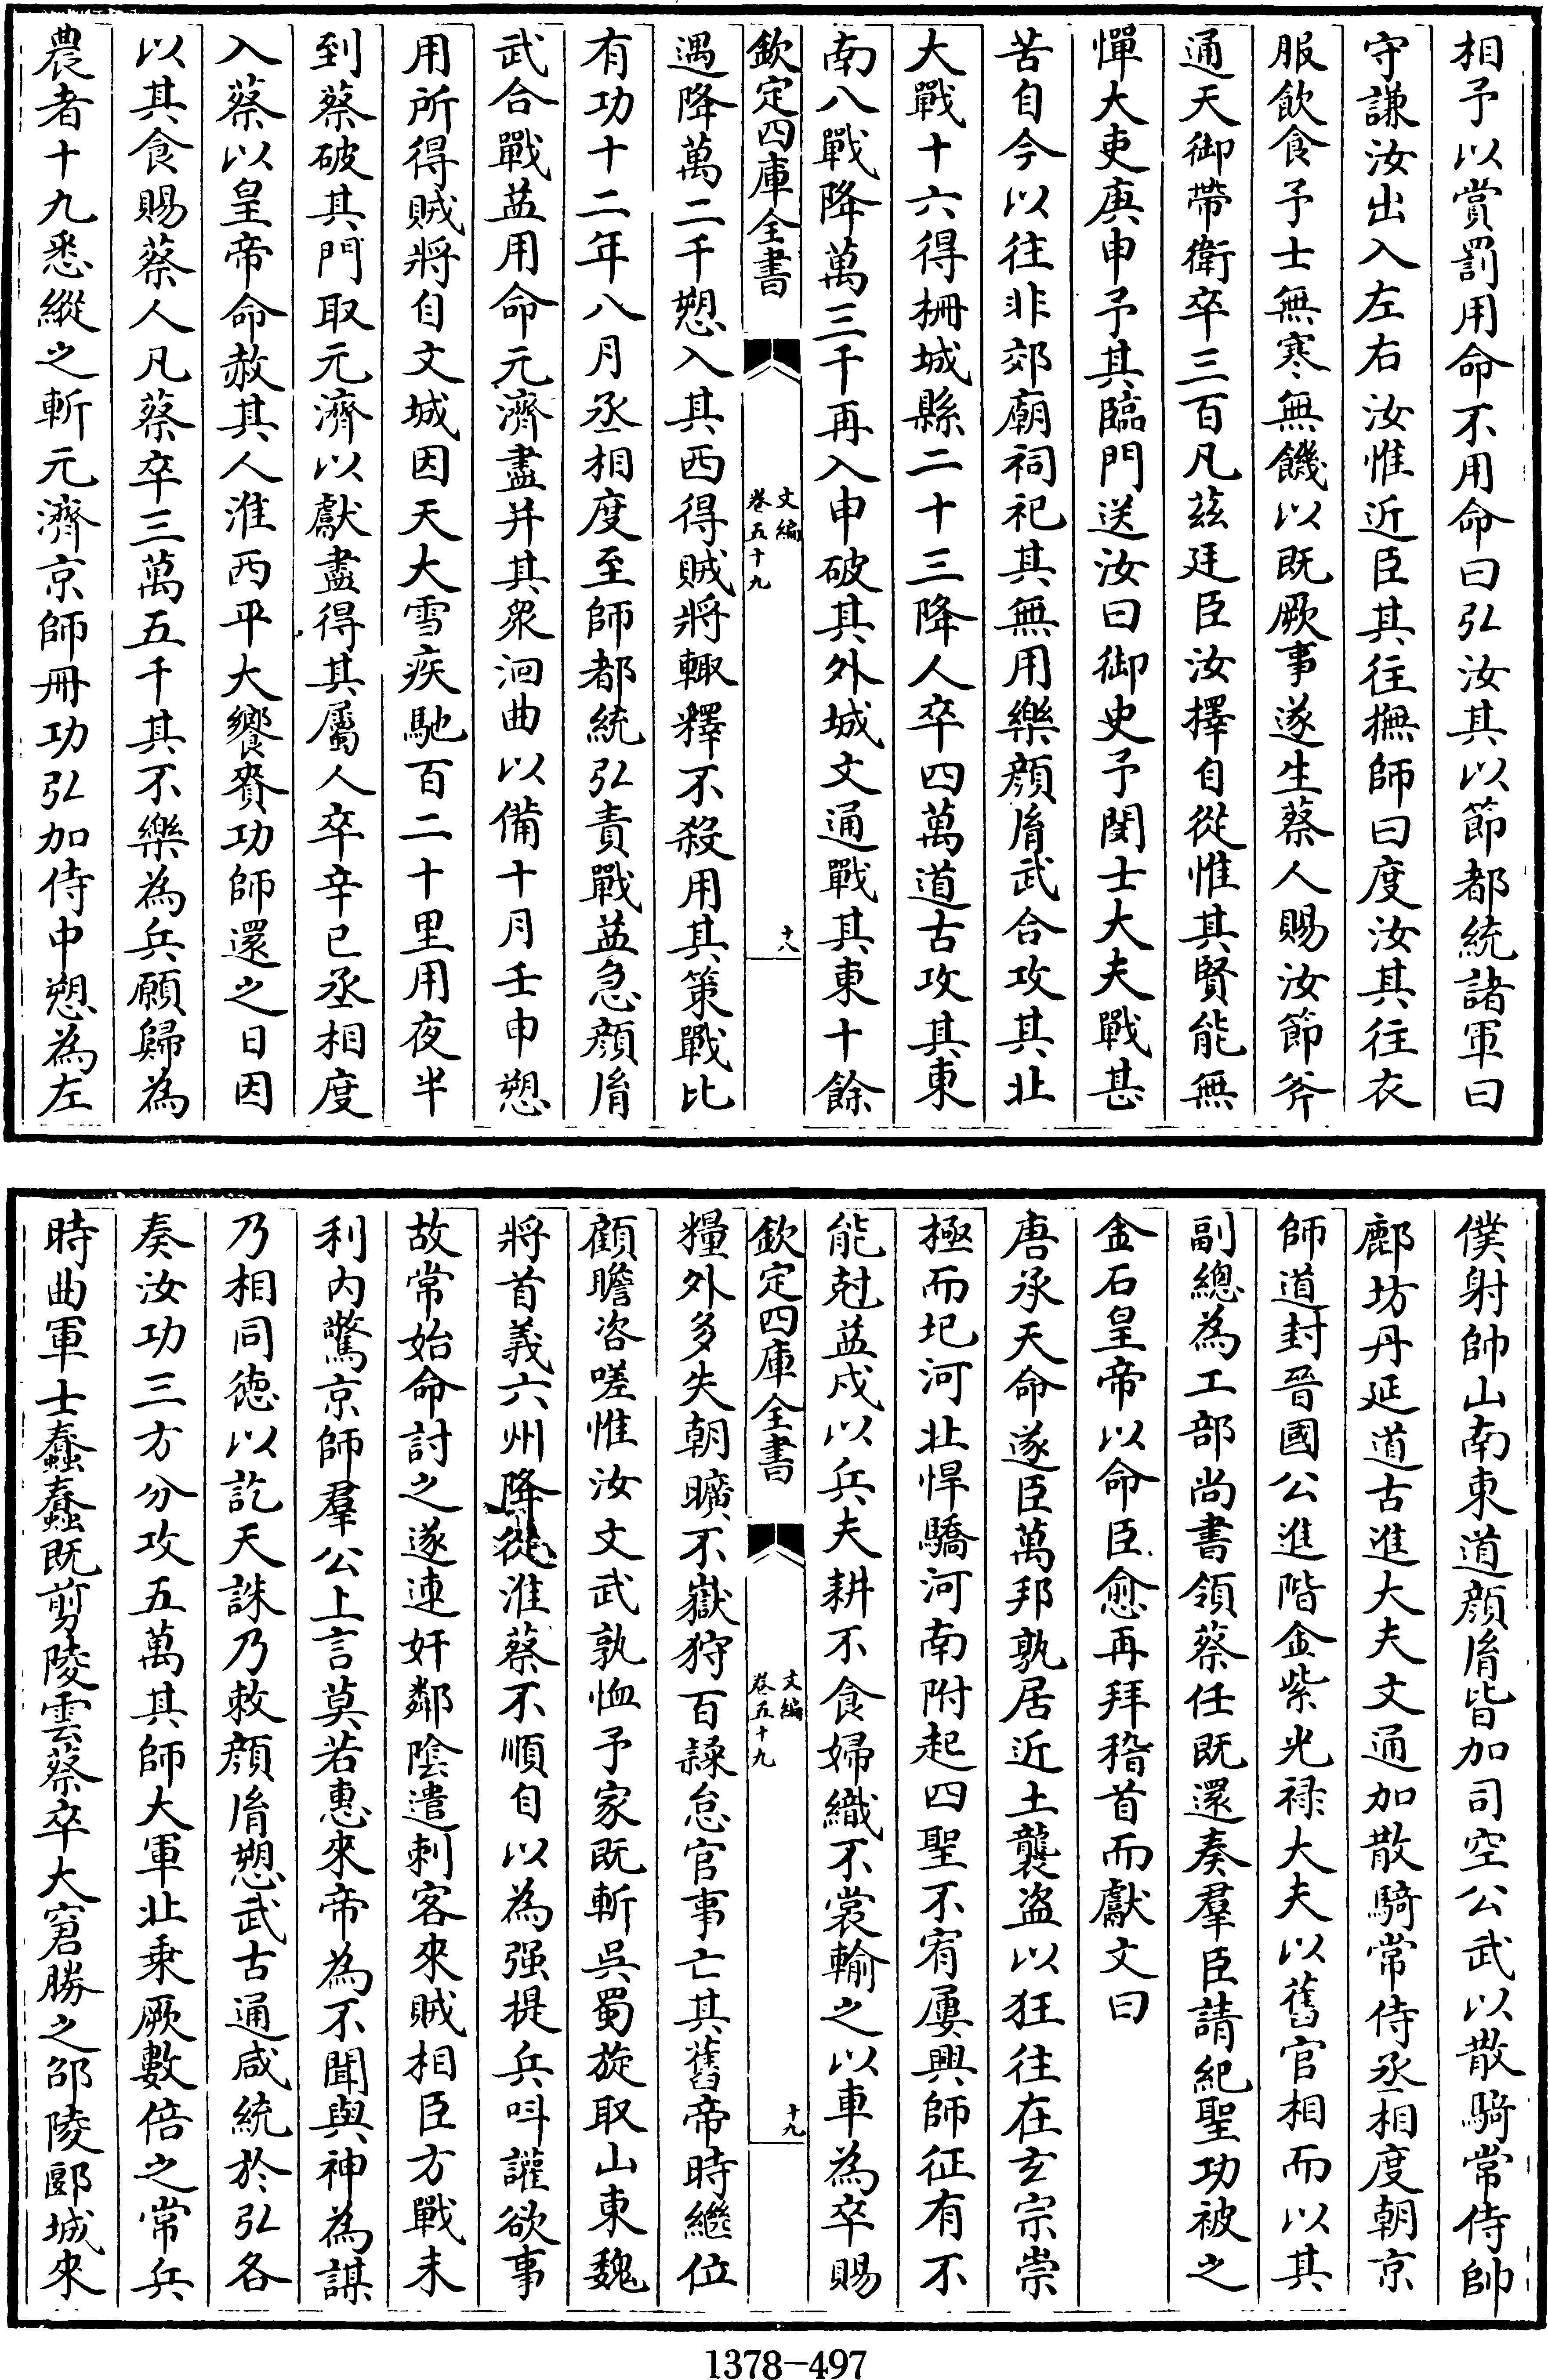 相予以賞罰用命不用命曰弘汝其以節都統諸軍曰
守謙汝出入左右汝惟近臣其往撫師曰度汝其往衣
服飲食予士無寒無饑以既厥事遂生蔡人賜汝節斧
通天御帶衛卒三百凡茲廷臣汝擇自從惟其賢能無
憚大吏庚申予其臨門送汝曰御史予閔士大夫戰甚
苦自今以往非郊廟祠祀其無用樂顔胤武合攻其北
大戰十六得柵城縣二十三降人卒四萬道古攻其東
南八戰降萬三千再入申破其外城文通戰其東十餘
欽定四庫全書
文編
卷五十九
十八
遇降萬二千愬入其西得賊將輒釋不殺用其策戰比
有功十二年八月丞相度至師都統弘責戰益急顔胤
武合戰益用命元濟盡并其衆洄曲以備十月壬申愬
用所得賊將自文城因天大雪疾馳百二十里用夜半
到蔡破其門取元濟以獻盡得其屬人卒辛巳丞相度
入蔡以皇帝命赦其人淮西平大饗賚功師還之日因
以其食賜蔡人凡蔡卒三萬五千其不樂為兵願歸為
農者十九悉縱之斬元濟京師冊功弘加侍中愬為左
僕射帥山南東道顔胤皆加司空公武以散騎常侍帥
鄜坊丹延道古進大夫文通加散騎常侍丞相度朝京
師道封晉國公進階金紫光祿大夫以舊官相而以其
副總為工部尚書領蔡任既還奏羣臣請紀聖功被之
金石皇帝以命臣愈再拜稽首而獻文曰
唐承天命遂臣萬邦孰居近土襲盜以狂往在玄宗崇
極而圮河北悍驕河南附起四聖不宥屢興師征有不
能尅益戍以兵夫耕不食婦織不裳輸之以車為卒賜
欽定四庫全書
文編
卷五十九
十九
糧外多失朝曠不嶽狩百隸怠官事亡其舊帝時繼位
顧瞻咨嗟惟汝文武孰恤予家既斬吳蜀旋取山東魏
將首義六州降從淮蔡不順自以為强提兵叫讙欲事
故常始命討之遂連奸鄰陰遣刺客來賊相臣方戰未
利內驚京師羣公上言莫若惠來帝為不聞與神為謀
乃相同德以訖天誅乃敕顔胤愬武古通咸統於弘各
奏汝功三方分攻五萬其師大軍北乗厥數倍之常兵
時曲軍士蠢蠢既剪陵雲蔡卒大窘勝之邵陵郾城來
1378-497